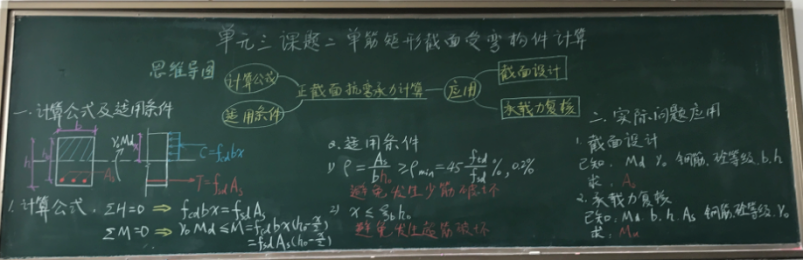 单元三课题二单筋矩形截面受弯构件计算
思维导图
计算公式
适用条件
正截面抗弯承力计算
应用
截面设计
承载力复核
一.计算公式及适用条件
b
h
h₀
As
γ₀Md
x
C=fcdbx
T=fsdAs
1.计算公式.ΣH=0⇒fcdbx=fsdAs
ΣM=0⇒γ₀Md≤M=fcdbx(h₀-x/2)
=fsdAs(h₀-x/2)
2.适用条件
1) ρ=As/bh₀≥ρmin=45ftd/fsd%,0.2%
避免发生少筋破坏
2) x≤ξbh₀
避免发生超筋破坏
二.实际问题应用
1.截面设计
已知.Md γ₀ 钢筋.砼等级.b.h
求.As
2.承载力复核
已知.Md.b.h.As 钢筋.砼等级.γ₀
求.Mu